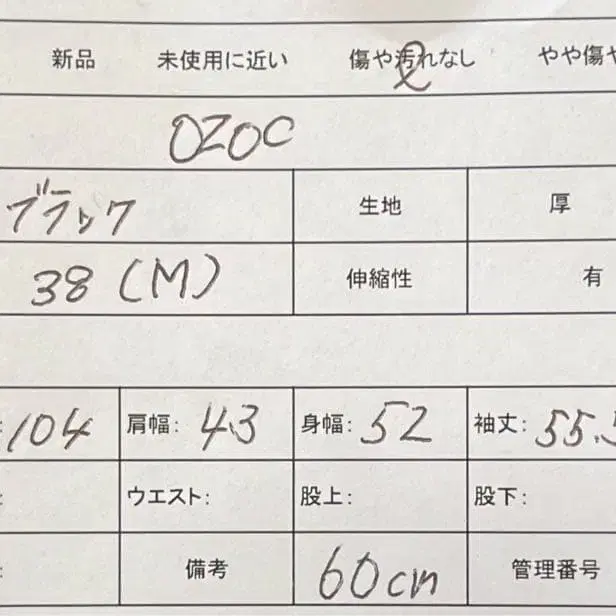 新品 未使用に近い 傷や汚れなし やや傷や
OZOC
ブラック 生地 厚
38 (M) 伸縮性 有
: 104 肩幅: 43 身幅: 52 袖丈: 55.5
: ウエスト: 股上: 股下:
: 備考 60cm 管理番号